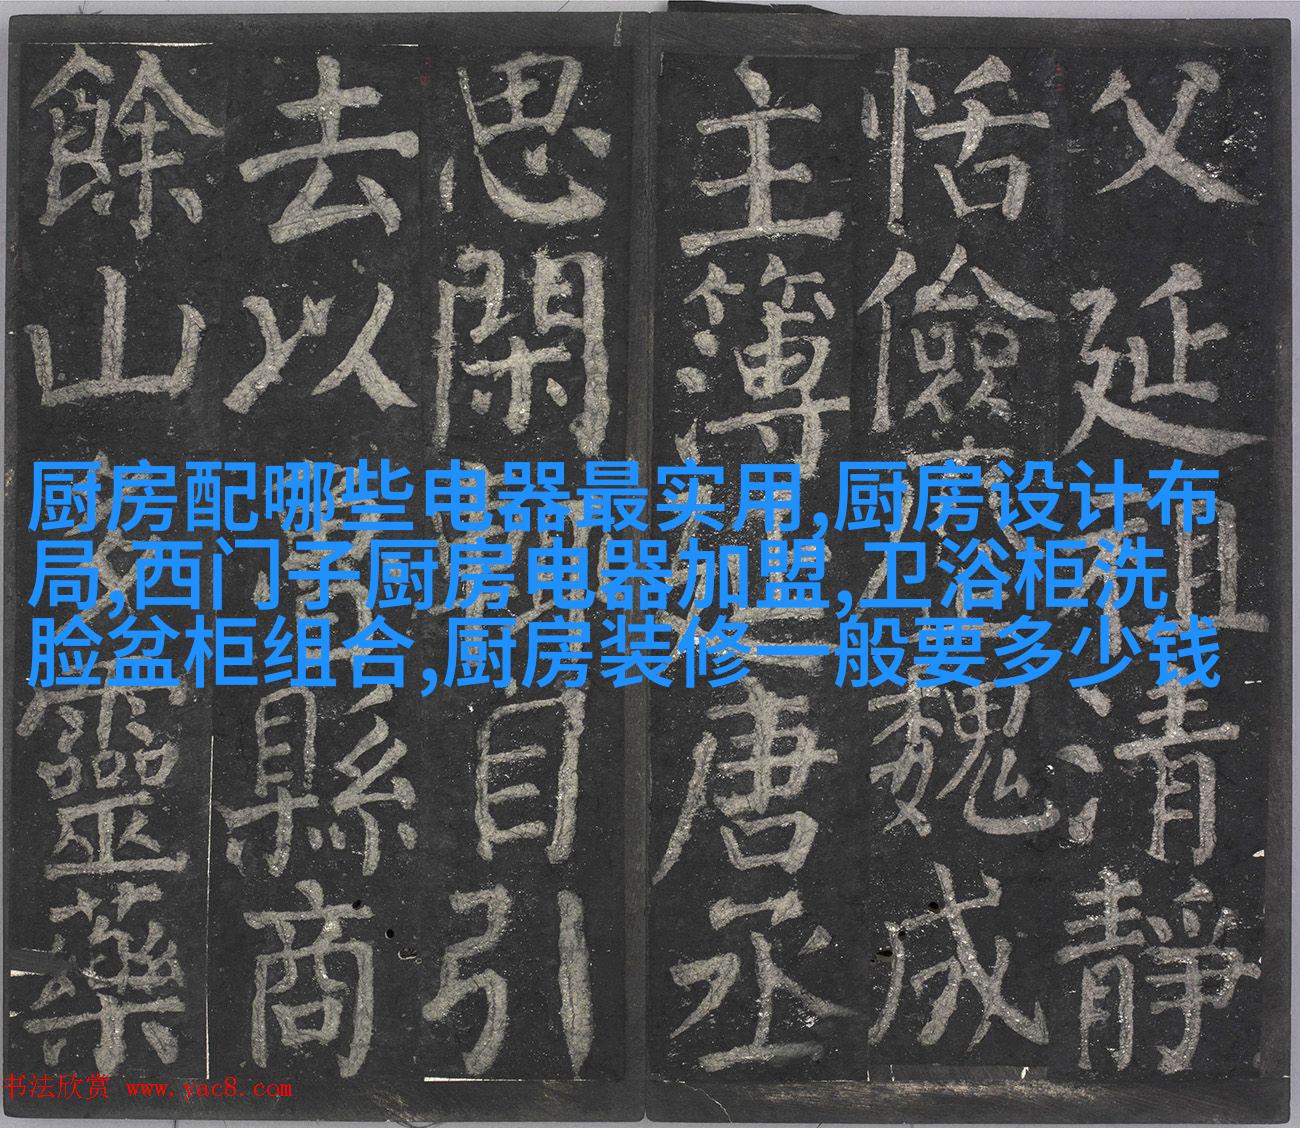 父延祖清靜
恬儉魏成
主簿唐丞
思閑自引
去以縣商
餘山靈藥
厨房配哪些电器最实用,厨房设计布
局,西门子厨房电器加盟,卫浴柜洗
脸盆柜组合,厨房装修一般要多少钱
书法欣赏 www.yac8.com